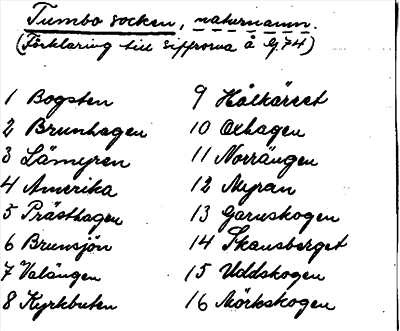 Tumbo socken, naturnamn.
(Förklaring till siffrorna å Y.74)
1 Bogsten
2 Brunhagen
3 Lämyren
4 Amerika
5 Prästhagen
6 Brunsjön
7 Valängen
8 Kyrkbuten
9 Hålkärret
10 Oxhagen
11 Norrängen
12 Myran
13 Garnskogen
14 Skansberget
15 Uddskogen
16 Mörkskogen